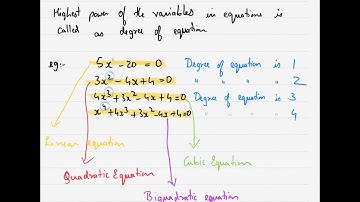 Highest power of the variables in equations is
called as degree of equation
eg:- 5x - 20 = 0 Degree of equation is 1
3x² - 4x + 4 = 0 " " " " 2
4x³ + 3x² - 4x + 4 = 0 Degree of equation is 3
x⁴ + 4x³ + 3x² - 4x + 4 = 0 " " " " 4
Linear equation
Cubic Equation
Quadratic Equation
Biquadratic equation